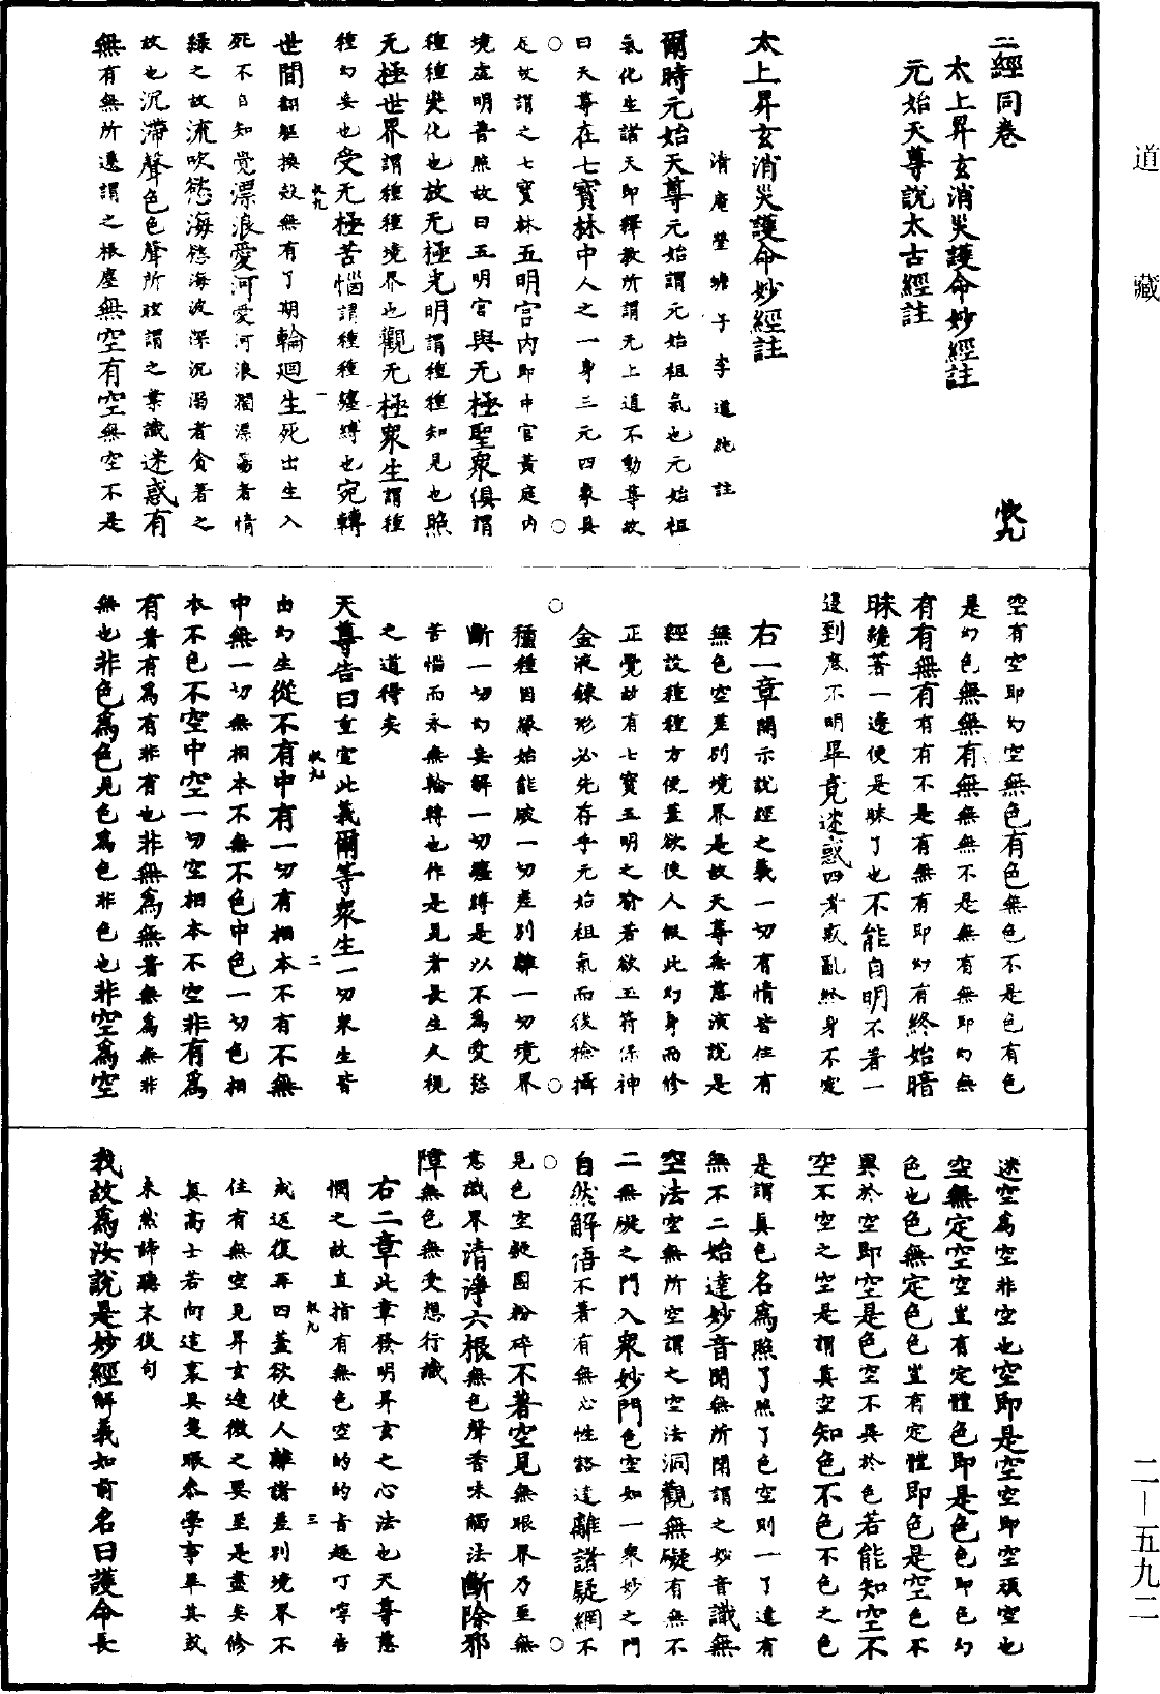 道藏
二經同卷
太上昇玄消災護命妙經註
元始天尊說太古經註
攸九
太上昇玄消災護命妙經註
清庵瑩蟾子李道純註
爾時元始天尊元始謂元始祖氣也元始祖
氣化生諸天即釋教所謂无上道不動尊故
曰天尊在七寶林中人之一身三元四象具
足故謂之七寶林五明宮內即中宮黃庭內
境虛明普照故曰五明宮與无極聖衆俱謂
種種變化也放无極光明謂種種知見也照
无極世界謂種種境界也觀无極衆生謂種
種幻妄也受无極苦惱謂種種纏縛也宛轉
攸九 一
世間翻軀換殼無有了期輪迴生死出生入
死不自知覺漂浪愛河愛河浪濶漂溺者情
緣之故流吹慾海慾海波深沉溺者貪著之
故也沉滯聲色色聲所眩謂之業識迷惑有
無有無所遷謂之根塵無空有空無空不是
空有空即幻空無色有色無色不是色有色
是幻色無無有無無無不是無有無即幻無
有有無有有有不是有無有即幻有終始暗
昧纔著一邊便是昧了也不能自明不著一
邊到底不明畢竟迷惑四者惑亂終身不定
右一章開示說經之義一切有情皆住有
無色空差別境界是故天尊無慈演說是
經設種種方便蓋欲使人假此幻身而修
正覺故有七寶五明之喻若欲玉符保神
金液鍊形必先存乎元始祖氣而後檢攝
種種因緣始能破一切差別離一切境界
斷一切幻妄解一切纏縛是以不為愛慾
苦惱而永無輪轉也作是見者長生久視
之道得矣
天尊告曰重宣此義爾等衆生一切衆生皆
攸九 二
由幻生從不有中有一切有相本不有不無
中無一切無相本不無不色中色一切色相
本不色不空中空一切空相本不空非有為
有著有為有非有也非無為無著無為無非
無也非色為色見色為色非色也非空為空
迷空為空非空也空即是空空即空頑空也
空無定空空豈有定體色即是色色即色幻
色也色無定色色豈有定體即色是空色不
異於空即空是色空不異於色若能知空不
空不空之空是謂真空知色不色不色之色
是謂真色名為照了照了色空則一了達有
無不二始達妙音聞無所聞謂之妙音識無
空法空無所空謂之空法洞觀無礙有無不
二無礙之門入衆妙門色空如一衆妙之門
自然解悟不著有無心性豁達離諸疑網不
見色空疑團粉碎不著空見無眼界乃至無
意識界清淨六根無色聲香味觸法斷除邪
障無色無受想行識
右二章此章發明昇玄之心法也天尊慈
憫之故直指有無色空的的旨趣叮嚀告
攸九 三
戒返復再四蓋欲使人離諸差別境界不
住有無空見昇玄造微之要至是盡矣修
真高士若向這裏具隻眼參學事畢其或
未然諦聽末後句
我故為汝說是妙經解義如前名曰護命長
二—五九二